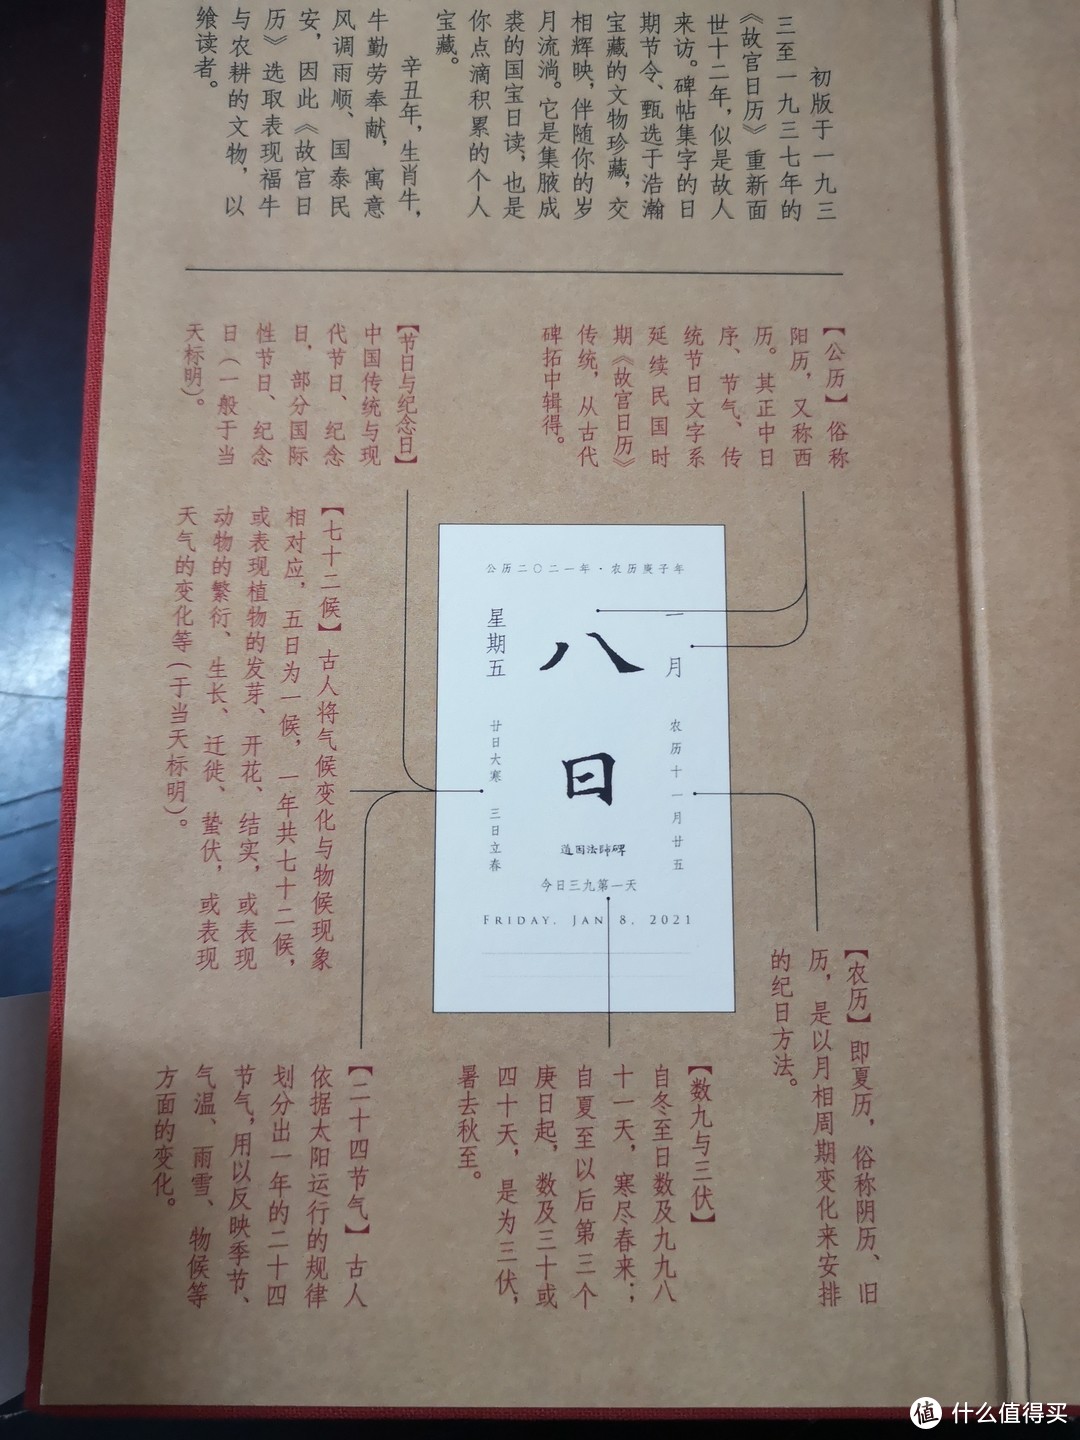 初版于一九三
三至一九三七年的
《故宫日历》重新面
世十二年，似是故人
来访。碑帖集字的日
期节令、甄选于浩瀚
宝藏的文物珍藏，交
相辉映，伴随你的岁
月流淌。它是集腋成
裘的国宝日读，也是
你点滴积累的个人
宝藏。
辛丑年，生肖牛，
牛勤劳奉献，寓意
风调雨顺、国泰民
安，因此《故宫日
历》选取表现福牛
与农耕的文物，以
飨读者。
【公历】俗称
阳历，又称西
历。其正中日
序、节气、传
统节日文字系
延续民国时
期《故宫日历》
传统，从古代
碑拓中辑得。
【节日与纪念日】
中国传统与现
代节日、纪念
日，部分国际
性节日、纪念
日（一般于当
天标明）。
【七十二候】古人将气候变化与物候现象
相对应，五日为一候，一年共七十二候，
或表现植物的发芽、开花、结实，或表现
动物的繁衍、生长、迁徙、蛰伏，或表现
天气的变化等（于当天标明）。
公历二〇二一年·农历庚子年
一月
八日
星期五
农历十一月廿五
廿日大寒 三日立春
道因法师碑
今日三九第一天
FRIDAY, JAN 8, 2021
【农历】即夏历，俗称阴历、旧
历，是以月相周期变化来安排
的纪日方法。
【数九与三伏】
自冬至日数及九九八
十一天，寒尽春来；
自夏至以后第三个
庚日起，数及三十或
四十天，是为三伏，
暑去秋至。
【二十四节气】古人
依据太阳运行的规律
划分出一年的二十四
节气，用以反映季节、
气温、雨雪、物候等
方面的变化。
值 什么值得买